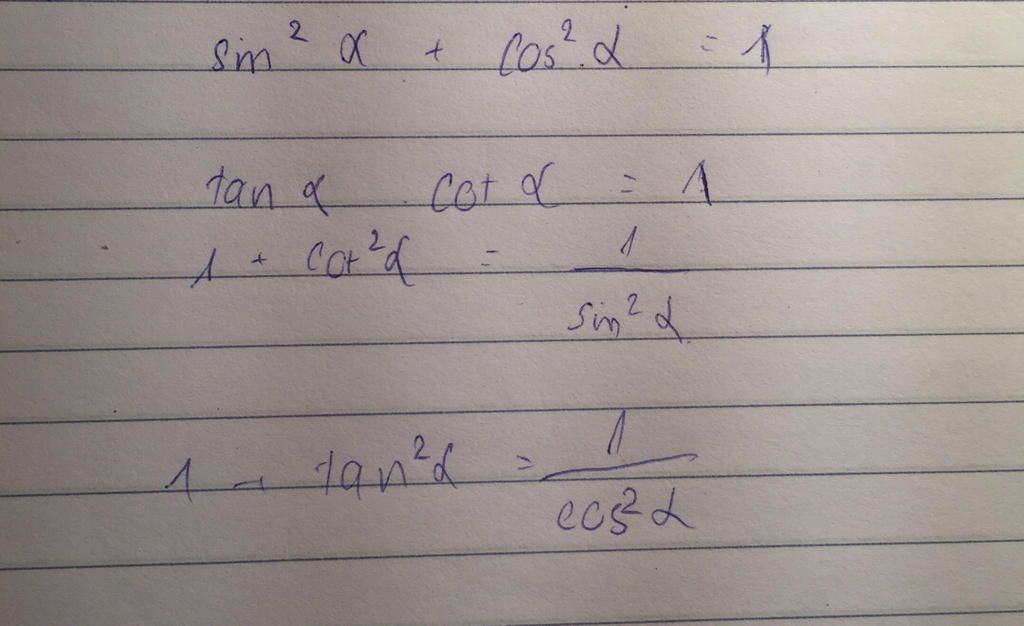 sin² α + cos² α = 1
tan α . cot α = 1
1 + cot² α = 1 / sin² α
1 - tan² α = 1 / cos² α